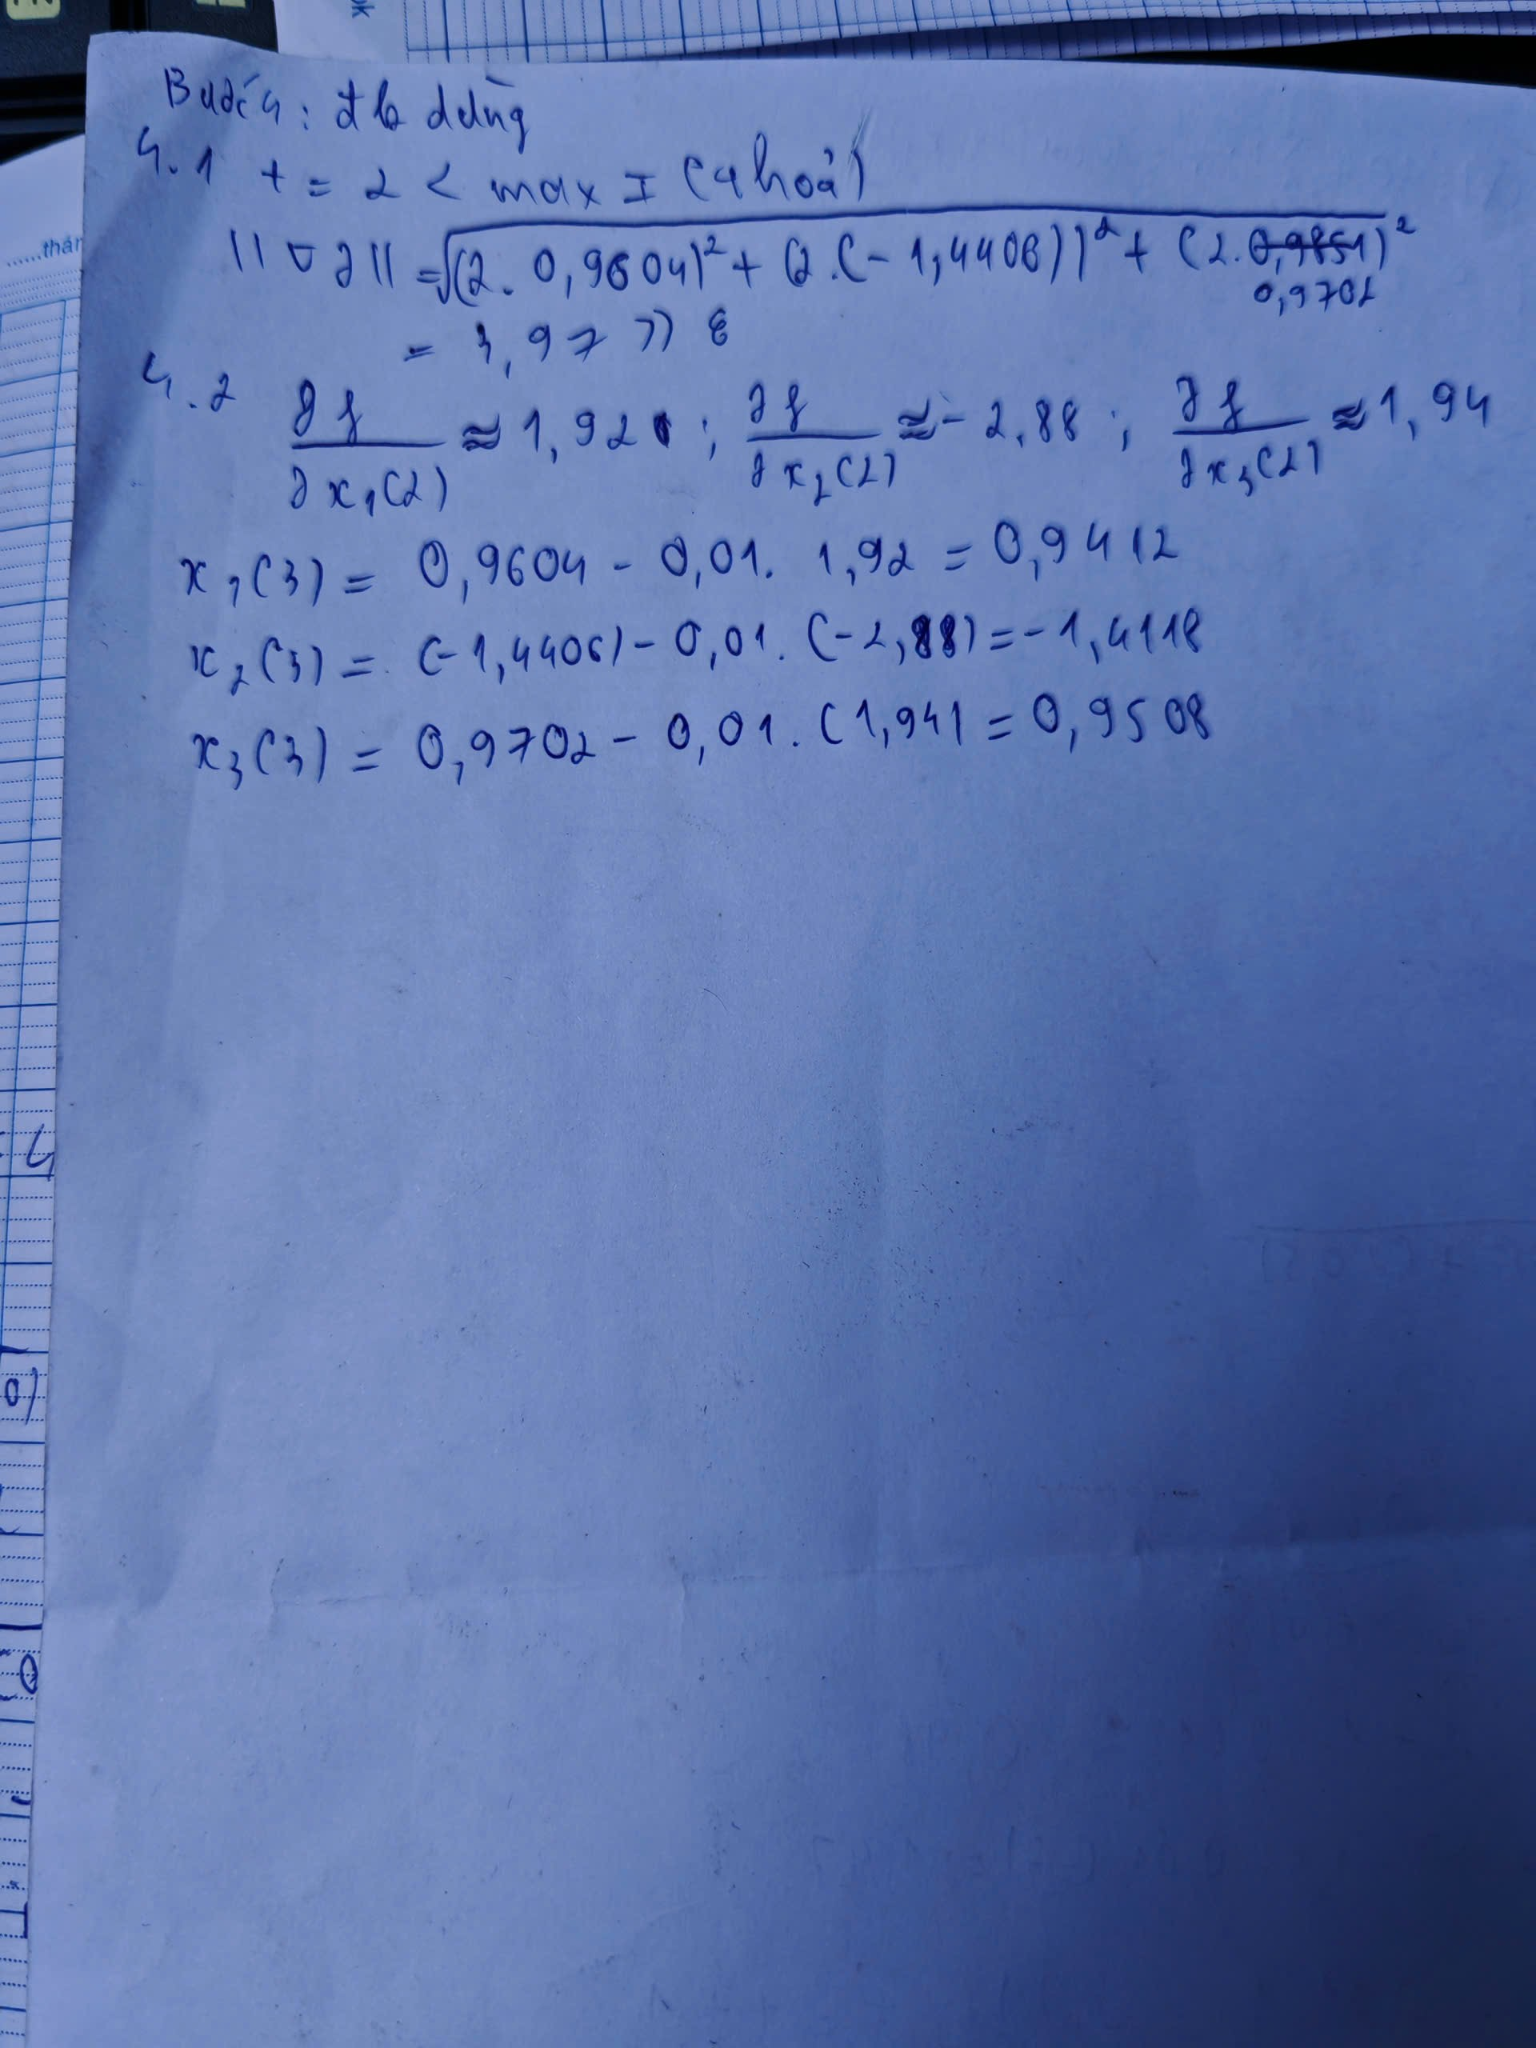 thán
Bước 4: đk dừng
4.1 t = 2 < max I (thoả)
||∇f|| = √(2. 0,9604)² + (2.(-1,4406))² + (2. 0,9851)²
0,9702
= 3,97 >> ε
4.2 ∂f/∂x₁(2) ≈ 1,92 ; ∂f/∂x₂(2) ≈ - 2,88 ; ∂f/∂x₃(2) ≈ 1,94
x₁(3) = 0,9604 - 0,01. 1,92 = 0,9412
x₂(3) = (-1,4406) - 0,01. (-2,88) = -1,4118
x₃(3) = 0,9702 - 0,01. (1,94) = 0,9508